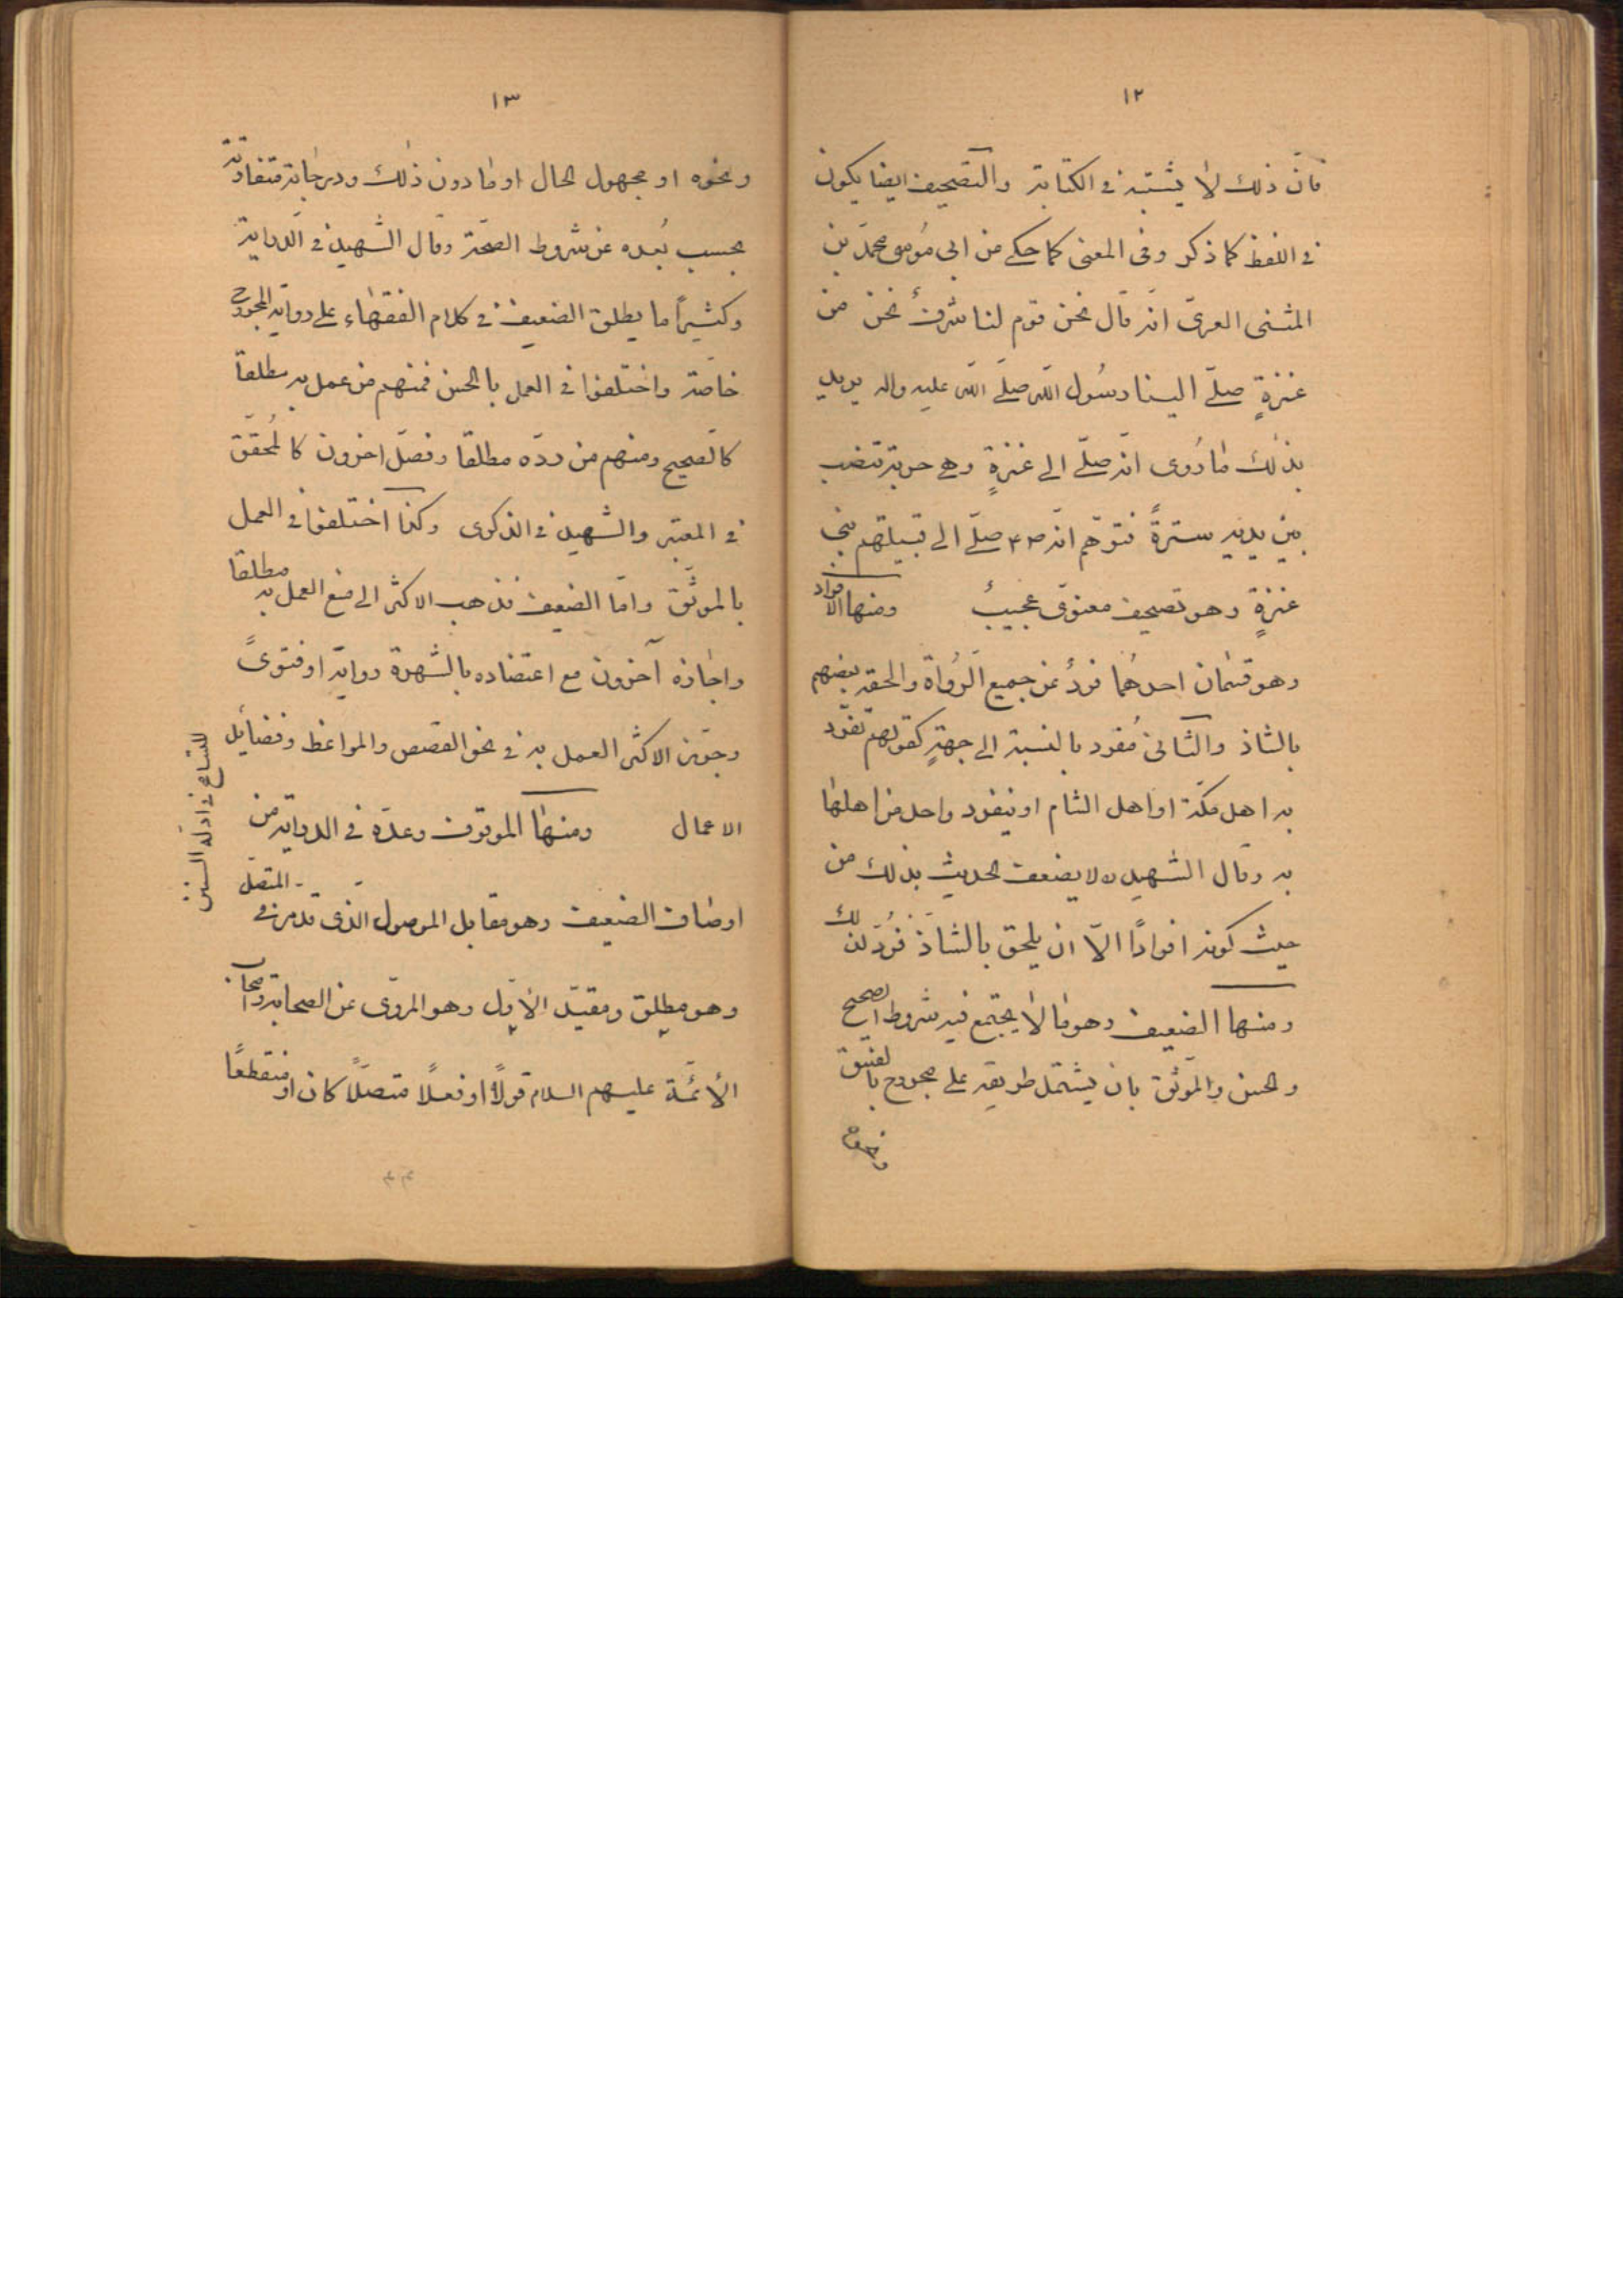 ١٢
فانّ ذلك لا يشتبه فى الكتابة والتّصحيف ايضا يكون
فى اللفظ كما ذكر وفى المعنى كما حكى من ابى مُوسى محمّد بن
المثنى العربىّ انّه قال نحن قوم لنا شرفٌ نحن من
عنزةٍ صلّى الينا رسُول اللّه صلّى اللّه عليه واله يريد
بذلك ما رُوى انّه صلّى الى عنزةٍ وهى حربة تنصب
بين يديه سترةً فتوهّم انّه ص٤٤ صلّى الى قبيلتهم بنى
عنزةٍ وهو تصحيف معنوىّ عجيبٌ ومنها الافراد
وهو قسمان احدهُما فردٌ عن جميع الرُواة والحقه بعضهم
بالشاذ والثّانى مُفرد بالنسبة الى جهةٍ كقولهم تفرّد
به اهل مكّة او اهل الشام او ينفرد واحد من اهلها
به وقال الشهيد ره لا يضعف الحديث بذلك من
حيث كونه افرادًا الّا ان يلحق بالشاذّ فُردّ لذلك
ومنها الضعيف وهو ما لا يجتمع فيه شروط الصحيح
والحسن والموثّق بان يشتمل طريقه على مجروح بالفسق
ونحوه
١٣
ونحوه او مجهول الحال او ما دون ذلك ودرجاته متفاوتة
بحسب بُعده عن شروط الصحّة وقال الشّهيد فى الدّراية
وكثيرًا ما يطلق الضعيف فى كلام الفقهاء على رواية المجروح
خاصّة واختلفوا فى العمل بالحسن فمنهم من عمل به مطلقا
كالصحيح ومنهم من ردّه مطلقا وفصّل اخرون كالمُحقّق
فى المعتبر والشهيد فى الذكرى وكذا اختلفوا فى العمل
بالموثّق وامّا الضعيف فذهب الاكثر الى منع العمل به مطلقا
واجازه آخرون مع اعتضاده بالشهرة رواية او فتوىً
وجوّز الاكثر العمل به فى نحو القصص والمواعظ وفضايل
الاعمال ومنها الموقوف وعدّه فى الدراية من
اوصاف الضعيف وهو مقابل الموصول المتصل الذى قد مرّ
وهو مطلق ومقيّد الاوّل وهو المروىّ عن الصحابة
الأئمّة عليهم السلام قولًا او فعلًا متصلًا كان او منقطعًا
للتسامح فى ادلّة السنن